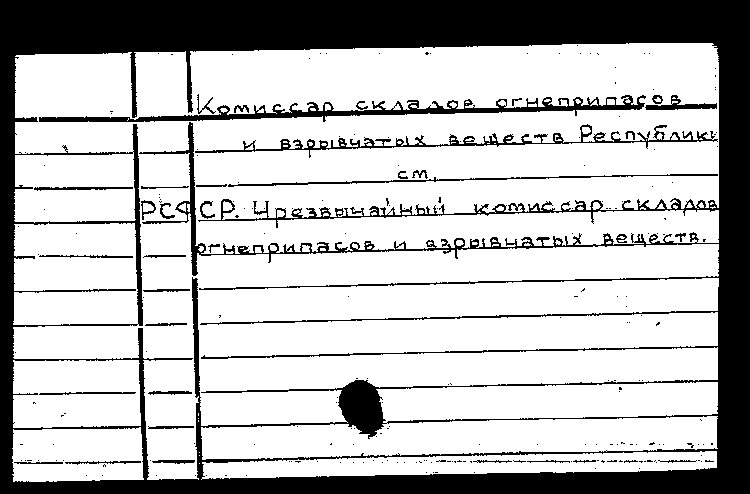 Комиссар складов огнеприпасов
и взрывчатых веществ Республики
см.
РСФСР. Чрезвычайный комиссар складов
огнеприпасов и взрывчатых веществ.